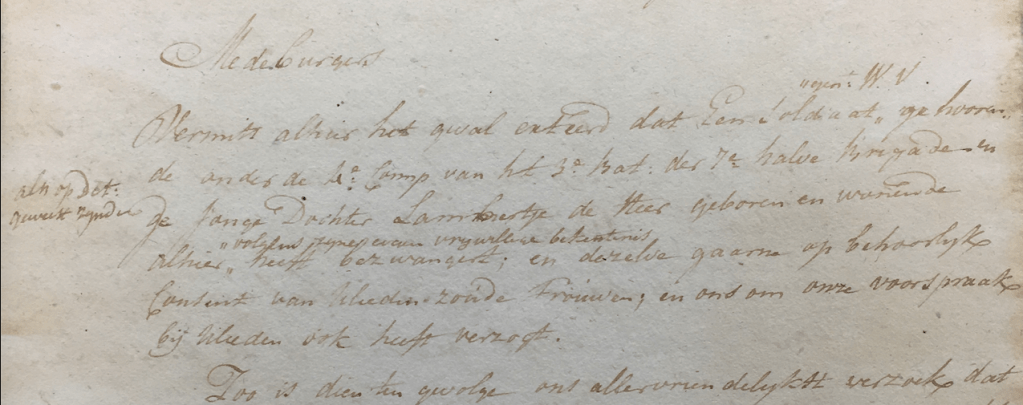 Medeburgers
„gen:t W. V
Vermits alhier het geval exteerd dat Een Soldaat „ gehooren
de onder de 4e. Comp van ht 3e. Bat: der 7e halve Brigade en
alh op det:
geweest zynde
de Jonge Dochter Lambertje de Heer geboren en wonende
„volgens zyne eigen vrywillige bekentenis
alhier „ heeft bezwangert; en dezelve gaarne op behoorlyk
Consent van Ulieden zoude Trouwen; en ons om onze voorspraak
bij Ulieden ook heeft verzogt.
Zoo is dien ten gevolge ons allervriendelykst verzoek dat